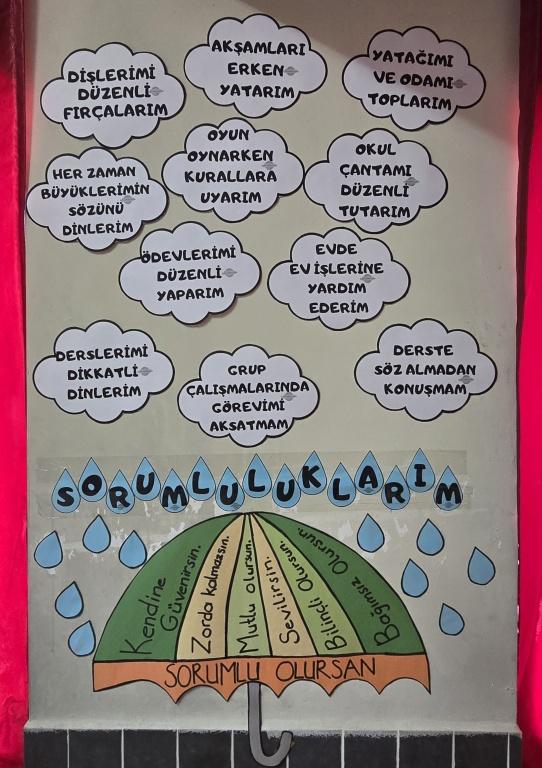 DİŞLERİMİ
DÜZENLİ
FIRÇALARIM
AKŞAMLARI
ERKEN
YATARIM
YATAĞIMI
VE ODAMI
TOPLARIM
HER ZAMAN
BÜYÜKLERİMİN
SÖZÜNÜ
DİNLERİM
OYUN
OYNARKEN
KURALLARA
UYARIM
OKUL
ÇANTAMI
DÜZENLİ
TUTARIM
ÖDEVLERİMİ
DÜZENLİ
YAPARIM
EVDE
EV İŞLERİNE
YARDIM
EDERİM
DERSLERİMİ
DİKKATLİ
DİNLERİM
GRUP
ÇALIŞMALARINDA
GÖREVİMİ
AKSATMAM
DERSTE
SÖZ ALMADAN
KONUŞMAM
SORUMLULUKLARIM
Kendine
Güvenirsin.
Zorda kalmazsın.
Mutlu olursun.
Sevilirsin.
Bilinçli Olursun.
Bağımsız Olursun.
SORUMLU OLURSAN